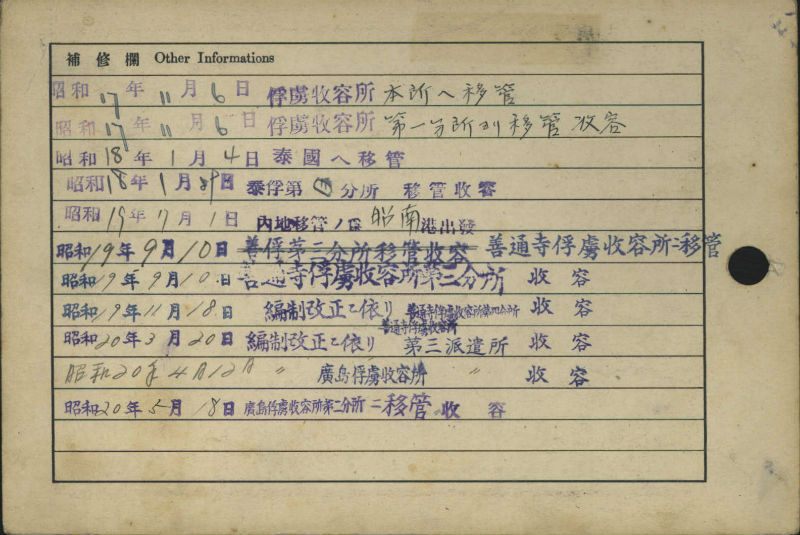 補修欄 Other Informations
昭和17年11月6日 俘虜收容所 本所へ移管
昭和17年11月6日 俘虜收容所 第一分所ヨリ移管收容
昭和18年1月4日 泰國へ移管
昭和18年1月29日 泰俘第四分所 移管收容
昭和19年7月1日 內地移管ノ爲 昭南港出發
昭和19年9月10日 善俘第三分所移管收容 善通寺俘虜收容所ニ移管
昭和19年9月10日 善通寺俘虜收容所第三分所 收容
昭和19年11月18日 編制改正ニ依リ 善通寺俘虜收容所第四分所 收容
昭和20年3月20日 編制改正ニ依リ 善通寺俘虜收容所 第三派遣所 收容
昭和20年4月12日 〃 〃 廣島俘虜收容所 〃 收容
昭和20年5月18日 廣島俘虜收容所第二分所ニ移管 收容